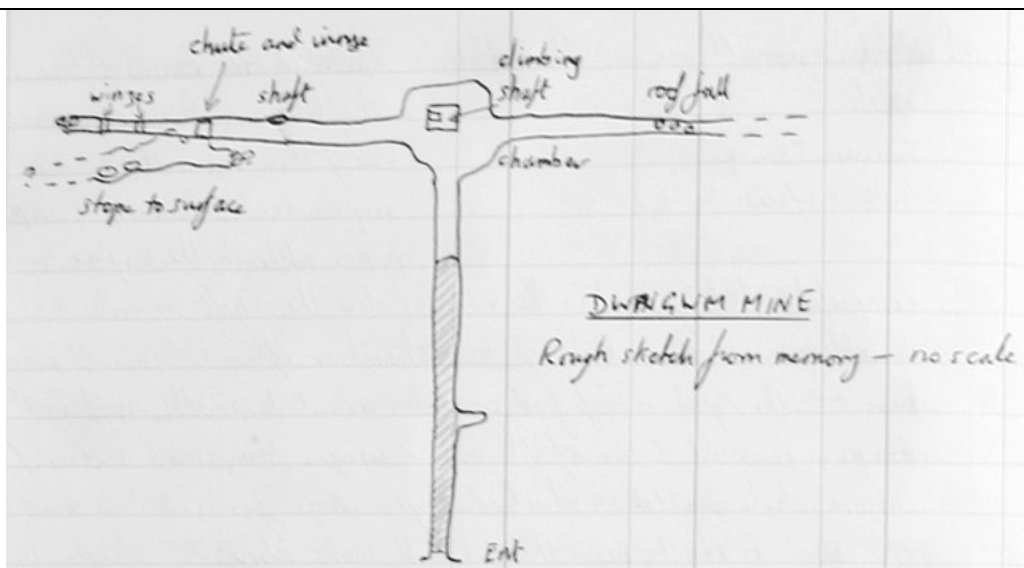 chute and winze
climbing
shaft
winzes
shaft
roof fall
chamber
stope to surface
DWNGWM MINE
Rough sketch from memory — no scale
Ent